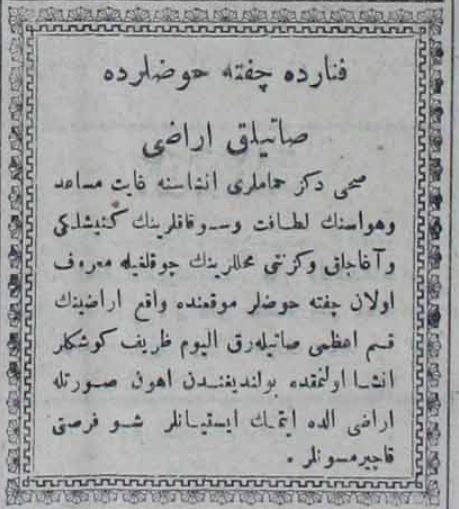 فنارده چفته حوضلرده
صاتیلق اراضی
صحی دکز حماملری انشاسنه غایت مساعد
وهواسنك لطافت وسوقاقلرینك كنیشلكی
وآغاجلق وكزنتی محللرینك چوقلغیله معروف
اولان چفته حوضلر موقعنده واقع اراضینك
قسم اعظمی صاتیله‌رق الیوم ظریف كوشكلر
انشا اولنمقده بولندیغندن اهون صورتله
اراضی الده ایتمك ایستیانلر شو فرصتی
قاچیرمسونلر .